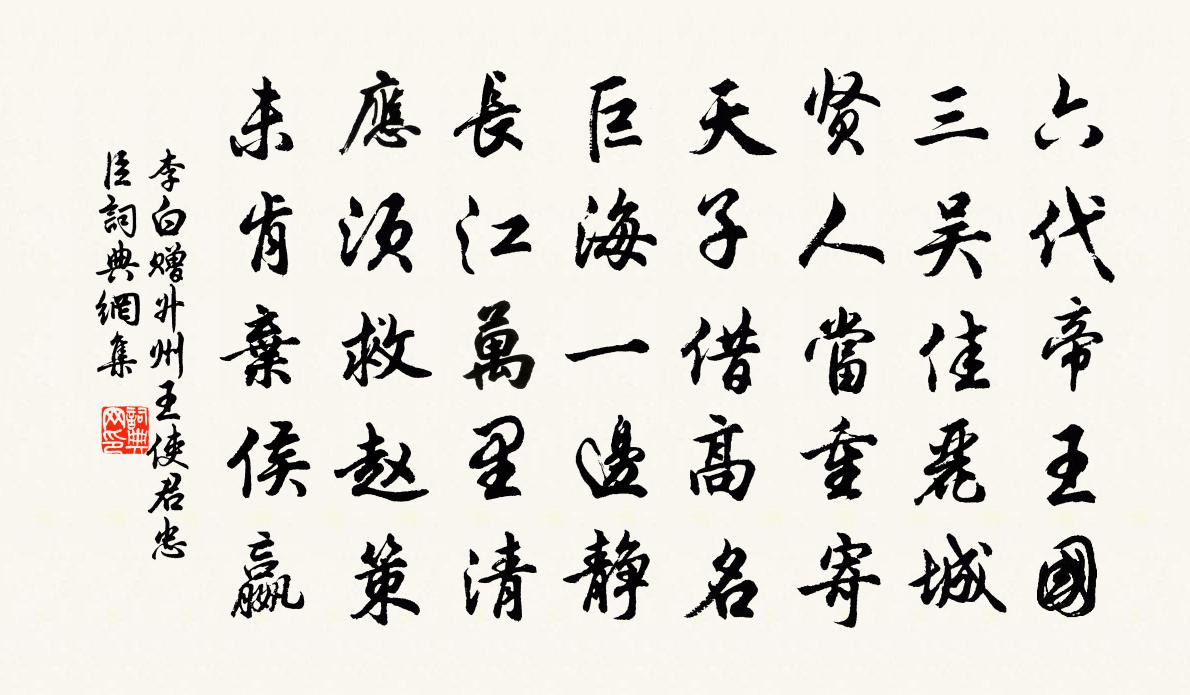 六代帝王國
三吴佳麗城
贤人當重寄
天子借高名
巨海一邊静
長江萬里清
應須救赵策
未肯棄侯嬴
李白赠升州王使君忠
臣詞典網集
詞典
网印